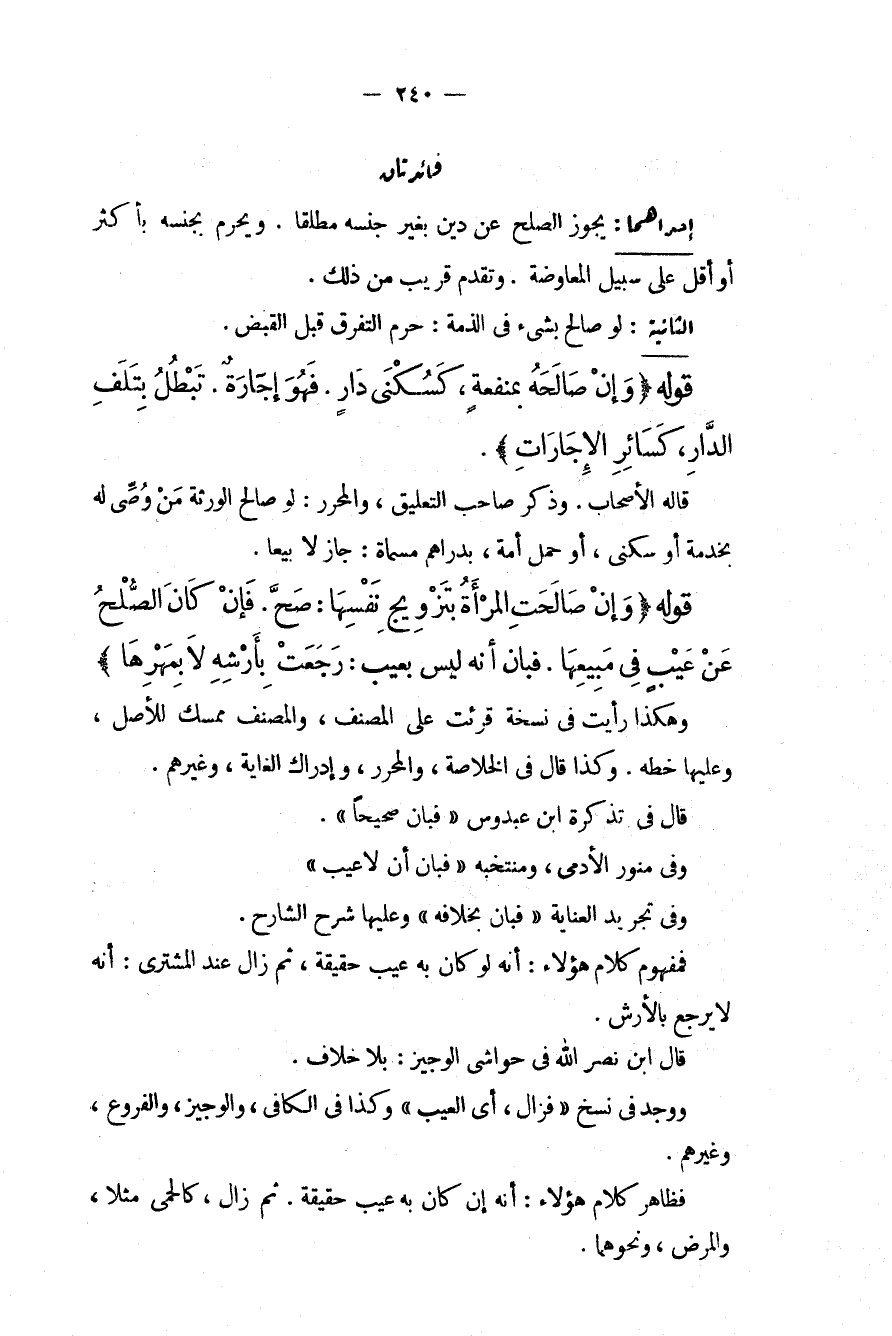 — ٢٤٠ —
فائدتان
إحداهما : يجوز الصلح عن دين بغير جنسه مطلقا . ويحرم بجنسه بأكثر
أو أقل على سبيل المعاوضة . وتقدم قريب من ذلك .
الثانية : لو صالح بشىء فى الذمة : حرم التفرق قبل القبض .
قوله ﴿ وَإِنْ صَالَحَهُ بمنفعةٍ ، كَسُكْنَى دَارٍ . فَهُوَ إِجَارَةٌ . تَبْطُلُ بِتَلَفِ
الدَّارِ ، كَسَائِرِ الإِجَارَاتِ ﴾ .
قاله الأصحاب . وذكر صاحب التعليق ، والمحرر : لو صالح الورثة مَنْ وُصِّى له
بخدمة أو سكنى ، أو حمل أمة ، بدراهم مسماة : جاز لا بيعا .
قوله ﴿ وَإِنْ صَالَحَتِ المرْأَةُ بِتَزْوِيجِ نَفْسِهَا : صَحَّ . فَإِنْ كَانَ الصُّلْحُ
عَنْ عَيْبٍ فِى مَبِيعِهَا . فبان أنه ليس بعيب : رَجَعَتْ بِأَرْشِهِ لاَ بِمَهْرِهَا ﴾
وهكذا رأيت فى نسخة قرئت على المصنف ، والمصنف ممسك للأصل ،
وعليها خطه . وكذا قال فى الخلاصة ، والمحرر ، وإدراك الغاية ، وغيرهم .
قال فى تذكرة ابن عبدوس « فبان صحيحاً » .
وفى منور الأدمى ، ومنتخبه « فبان أن لا عيب »
وفى تجريد العناية « فبان بخلافه » وعليها شرح الشارح .
فمفهوم كلام هؤلاء : أنه لو كان به عيب حقيقة ، ثم زال عند المشترى : أنه
لا يرجع بالأرش .
قال ابن نصر الله فى حواشى الوجيز : بلا خلاف .
ووجد فى نسخ « فزال ، أى العيب » وكذا فى الكافى ، والوجيز ، والفروع ،
وغيرهم .
فظاهر كلام هؤلاء : أنه إن كان به عيب حقيقة . ثم زال ، كالحمى مثلا ،
والمرض ، ونحوهما .